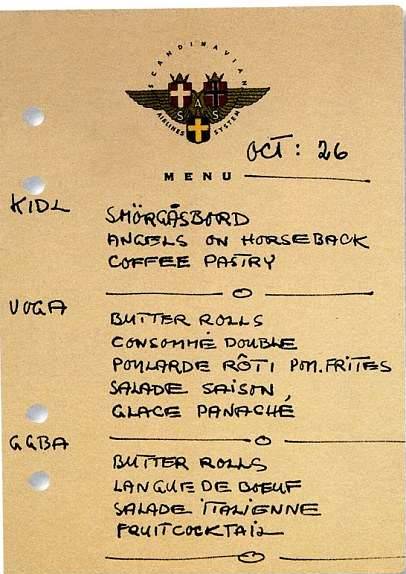 SCANDINAVIAN
S A S
AIRLINES SYSTEM
OCT: 26
MENU
KIDL SMÖRGÅSBORD
ANGELS ON HORSEBACK
COFFEE PASTRY
VOGA BUTTER ROLLS
CONSOMMÉ DOUBLE
POULARDE RÔTI POM. FRITES
SALADE SAISON
GLACE PANACHÉ
GGBA BUTTER ROLLS
LANGUE DE BOEUF
SALADE ITALIENNE
FRUITCOCKTAIL